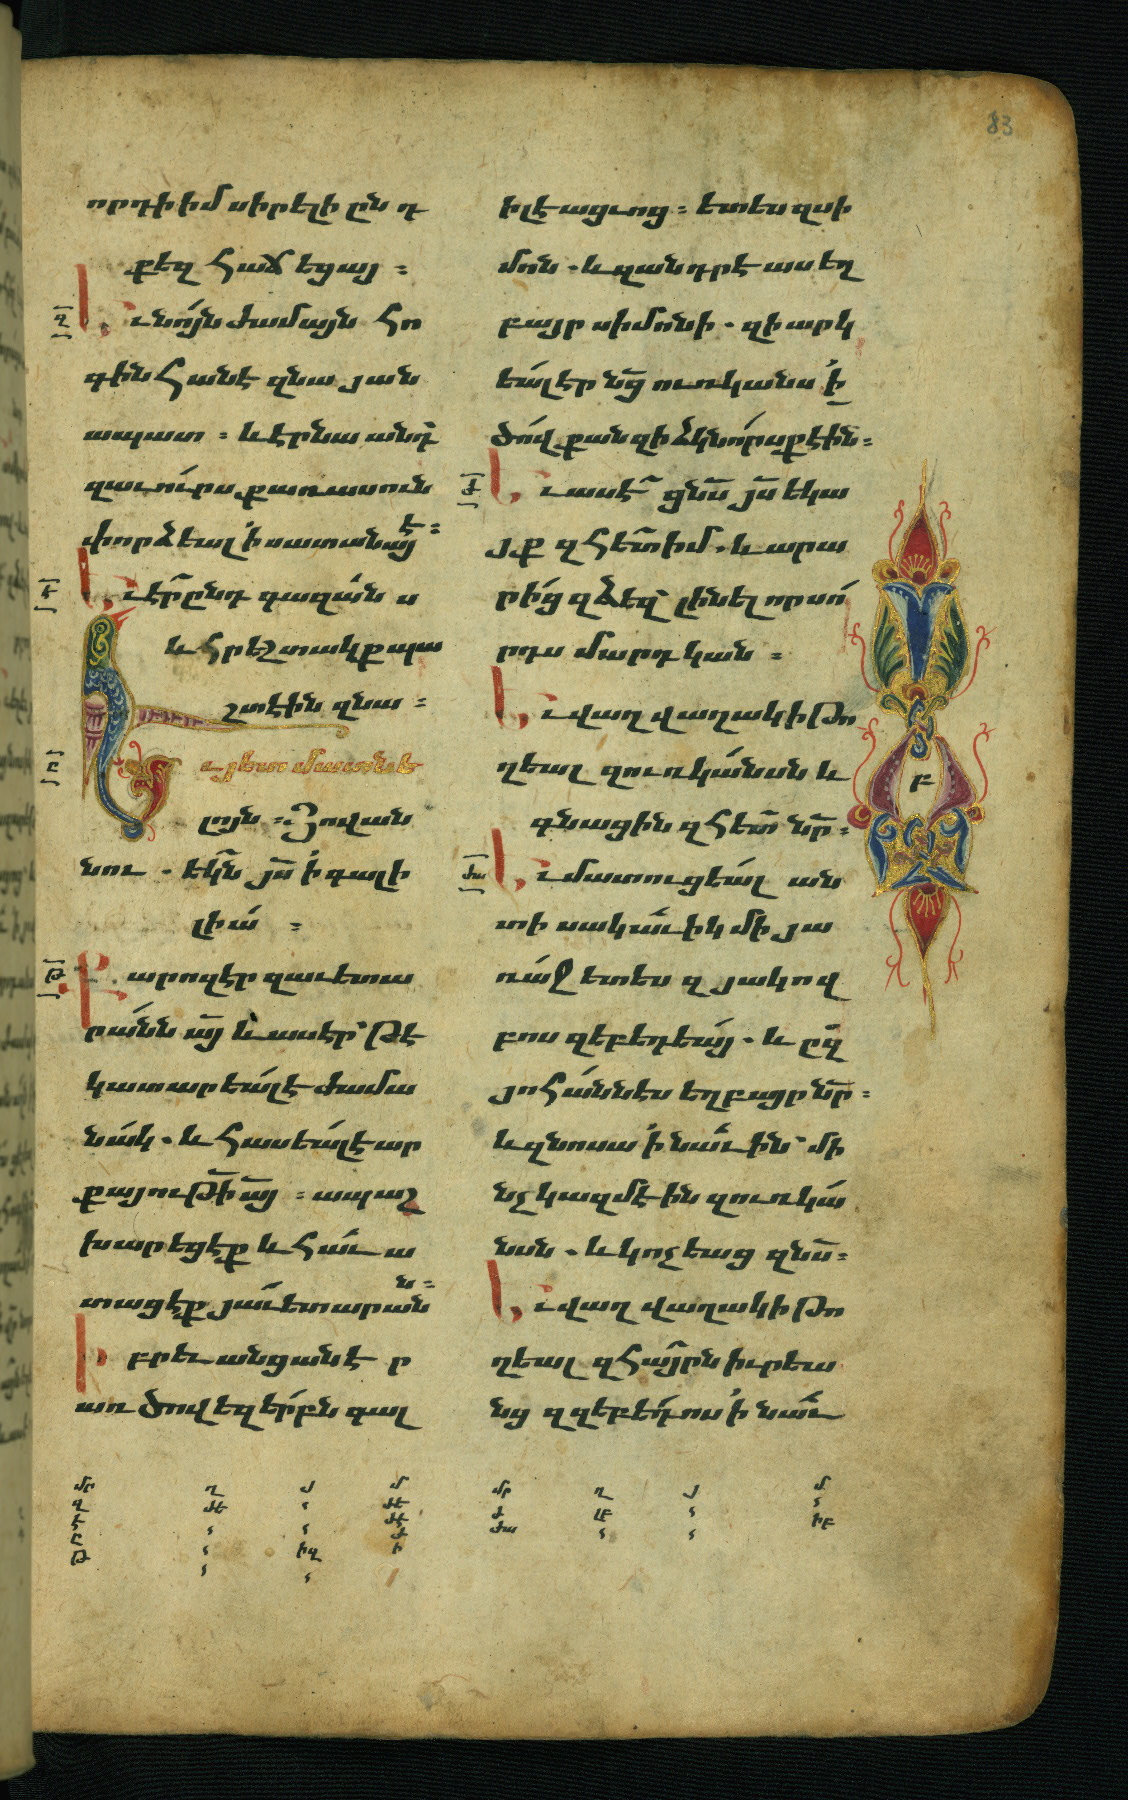 83
որդի իմ սիրելի ընդ
քեզ հաճեցայ ։
զ
Եւ նոյն ժամայն հո
գին հանէ զնա յան
ապատ ։ և էր նա անդ
զաւուրս քառասուն
փորձեալ ի սատանայէ ։
է
Եւ էր ընդ գազան ս
և հրեշտակք պա
շտէին զնա ։
ը
Եւ յետ մատնե
լոյն Յովան
նու . եկն յս ի գալի
լիա ։
թ
Քարոզէր զաւետա
րանն այ և ասէր թէ
կատարեալ է ժամա
նակ . և հասեալ է ար
քայութի այ ։ ապաշ
խարեցէք և հաւա
տացէք յաւետարանն ։
Իբրեւ անցանէ ր
առ ծովեզերբն գալ
իլէացւոց ։ ետես զսի
մոն . և զանդրէաս եղ
բայր սիմոնի . զի արկ
եալ էր նց ուռկանս ի
ծով քանզի ձկնորսք էին ։
ժ
Եւ ասէ ցնս յս եկա
յք զհետ իմ . և արա
րից զձեզ լինել որսո
րդս մարդկան ։
Եւ վաղվաղակի թո
ղեալ զուռկանսն և
գնացին զհետ նր ։
բ
ժա
Եւ մատուցեալ ան
տի սակաւիկ մի յա
ռաջ ետես զյակով
բոս զեբեդեայ . և ըզ
յոհաննես եղբայր նր ։
և զնոսա ի նաւին մի
նչ կազմէին զուռկա
նսն . և կոչեաց զնս ։
Եւ վաղվաղակի թո
ղեալ զհայրն իւրեա
նց զզեբեդէոս ի նաւ
մր ղ յ մ
զ ժե ՛ ժէ
է ՛ ՛ ժէ
ը ՛ իզ ժ
թ ՛ ՛ ի
մր ղ յ մ
ժ լբ ՛ ՛
ժա ՛ ՛ իբ